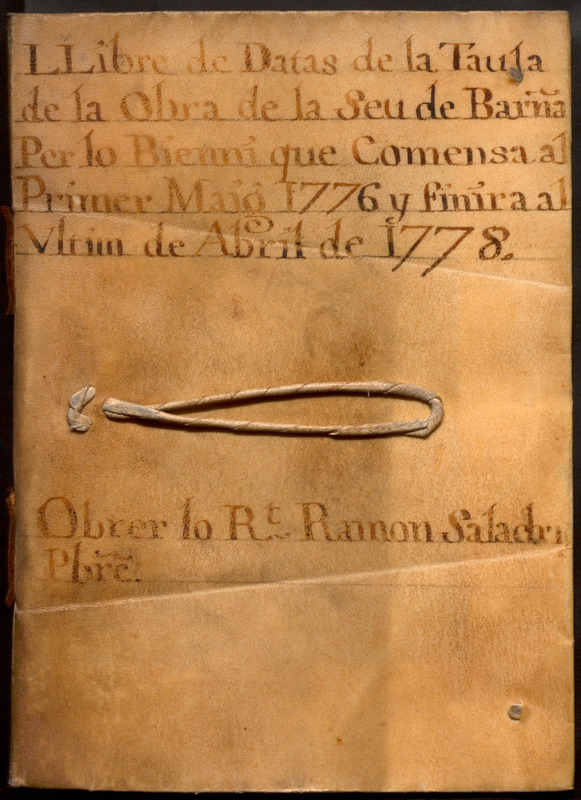 LLibre de Datas de la Taula
de la Obra de la Seu de Barña
Per lo Bienni que Comensa al
Primer Maig 1776 y finira al
Vltim de Abril de 1778.
Obrer lo Rt. Ramon Saladri
Pbre.